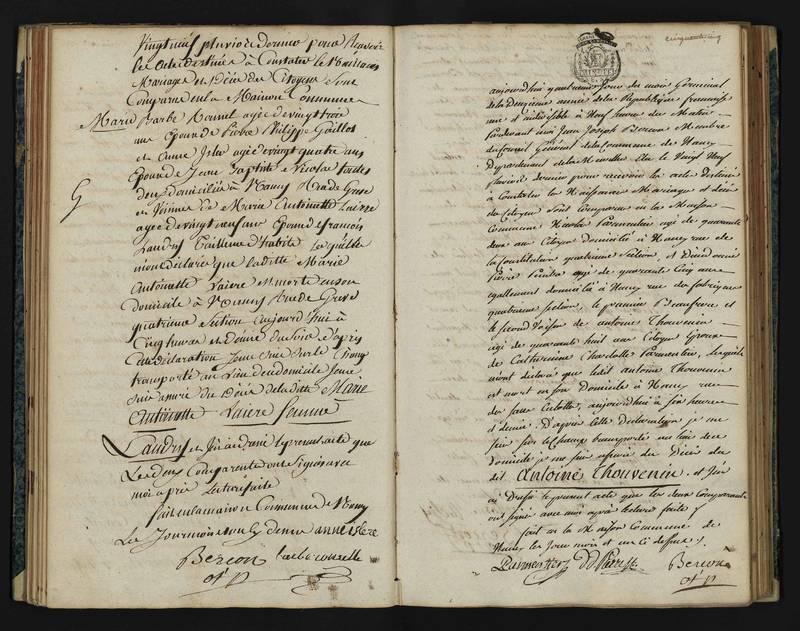 vingt neuf pluviose dernier pour Recevoir
les actes destinés à Constater les Naissances
Mariages et Décés des Citoyens sont
Comparue en la Maison Commune
Marie Barbe agée de vingt trois
ans Epouse de Pierre Philippe Gaillot
et Anne agée de vingt quatre ans
Epouse de Jean Baptiste Nicolas
deux domiciliée à Nancy Rue de Greve
et Voisines de Marie Antoinette Laiere
agée de vingt neuf ans Epouse de françois
Landry Tailleur d'habits Lesquelles
mont déclaré que ladite Marie
Antoinette Laiere est morte en son
domicile à Nancy Rue de Greve
quatrieme Section aujourd'hui à
Cinq heures et demie du soir d'après
Cette déclaration je me suis sur le Champ
transporté au Lieu du domicile je me
suis assuré du Décés de ladite Marie
Antoinette Laiere femme
Landry et J'ai dressé le présent acte que
Les deux Comparantes ont Signé avec
moi après Lecture faite
fait en la maison Commune de Nancy
Les Jour mois et an
Bercon
off p
G
cinquante cinq
aujourd'hui quatrieme Jour du mois Germinal
de la Deuxieme année de la République française
une et indivisible à Neuf heures du Matin
Pardevant moi Jean Joseph Bercon Membre
du Conseil Général de la Commune de Nancy
Département de la Meurthe Elu le Vingt Neuf
Pluviose dernier pour recevoir les actes Destinés
à Constater les Naissances Mariages et décés
des Citoyens sont Comparus en la Maison
Commune Nicolas Parmentier agé de quarante
deux ans Citoyen Domicilié à Nancy rue de
la Constitution quatrieme Section, et Dieudonné
Pierre Peintre agé de quarante Cinq ans
egallement domicilié à Nancy rue des fabriques
quatrieme Section, le premier Beaufrere et
le second Voisin de antoine Thouvenin
agé de quarante huit ans Citoyen Epoux
de Catherinne Charlotte Parmentier, lesquels
m'ont déclaré que ledit antoine Thouvenin
est mort en son Domicile à Nancy rue
des sans Culottes, aujourd'hui à six heures
et demie. D'après Cette Déclaration je me
suis sur le champ transporté au lieu du
Domicile je me suis assuré du Décés du
dit Antoine Thouvenin. et J'ai
Dressé le présent acte que les deux Comparants
ont signé avec moi après lecture faite
fait en la Maison Commune de
Nancy les Jour mois et an ci dessus.
Parmentier D Pierre Bercon
off p